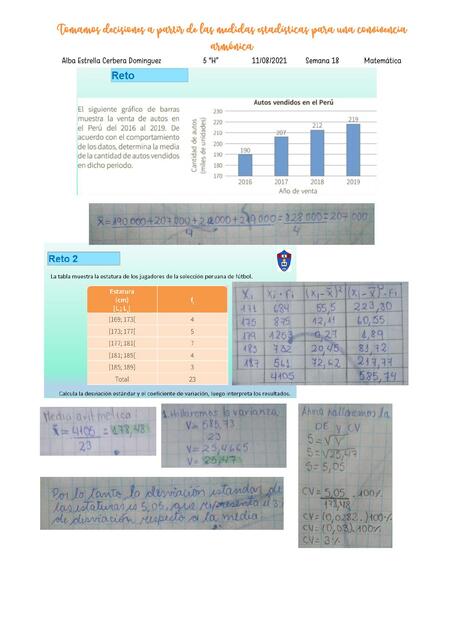 Tomamos decisiones a partir de las medidas estadísticas para una convivencia
armónica
Alba Estrella Cerbera Dominguez 5 "H" 11/08/2021 Semana 18 Matemática
Reto
El siguiente gráfico de barras
muestra la venta de autos en
el Perú del 2016 al 2019. De
acuerdo con el comportamiento
de los datos, determina la media
de la cantidad de autos vendidos
en dicho periodo.
Autos vendidos en el Perú
Cantidad de autos
(miles de unidades)
230
220
210
200
190
180
170
190
207
212
219
2016 2017 2018 2019
Año de venta
x̄ = 190 000 + 207 000 + 212 000 + 219 000 = 828 000 = 207 000
4 4
Reto 2
La tabla muestra la estatura de los jugadores de la selección peruana de fútbol.
Estatura
(cm)
[Lᵢ; Lₛ[ fᵢ
[169; 173[ 4
[173; 177[ 5
[177; 181[ 7
[181; 185[ 4
[185; 189[ 3
Total 23
Calcula la desviación estándar y el coeficiente de variación, luego interpreta los resultados.
Xi Xi · Fi (Xi - X̄)² (Xi - X̄)² · Fi
171 684 55,5
175 875 12,11 60,55
179 1253 0,27 1,89
183 732 20,45 81,72
187 561 72,62 217,77
4105 585,74
Media aritmética:
X̄ = 4105 = 178,48
23
1. Hallaremos la varianza
V = 585,73
23
V = 25,4665
V = 25,47
Ahora hallaremos la
DE y CV
S = √V
S = √25,47
S = 5,05
CV = 5,05 . 100%
178,48
CV = (0,0282..) 100%
CV = (0,03) 100%
CV = 3%
Por lo tanto, la desviación estandar de
las estaturas es 5,05, que representa el 3
de desviación respecto a la media.